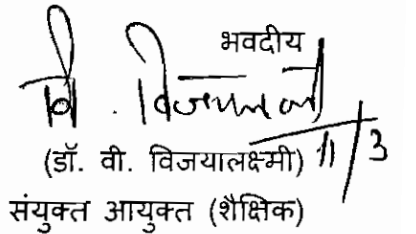 भवदीय
वि. विजयालक्ष्मी
11/3
(डॉ. वी. विजयालक्ष्मी)
संयुक्त आयुक्त (शैक्षिक)